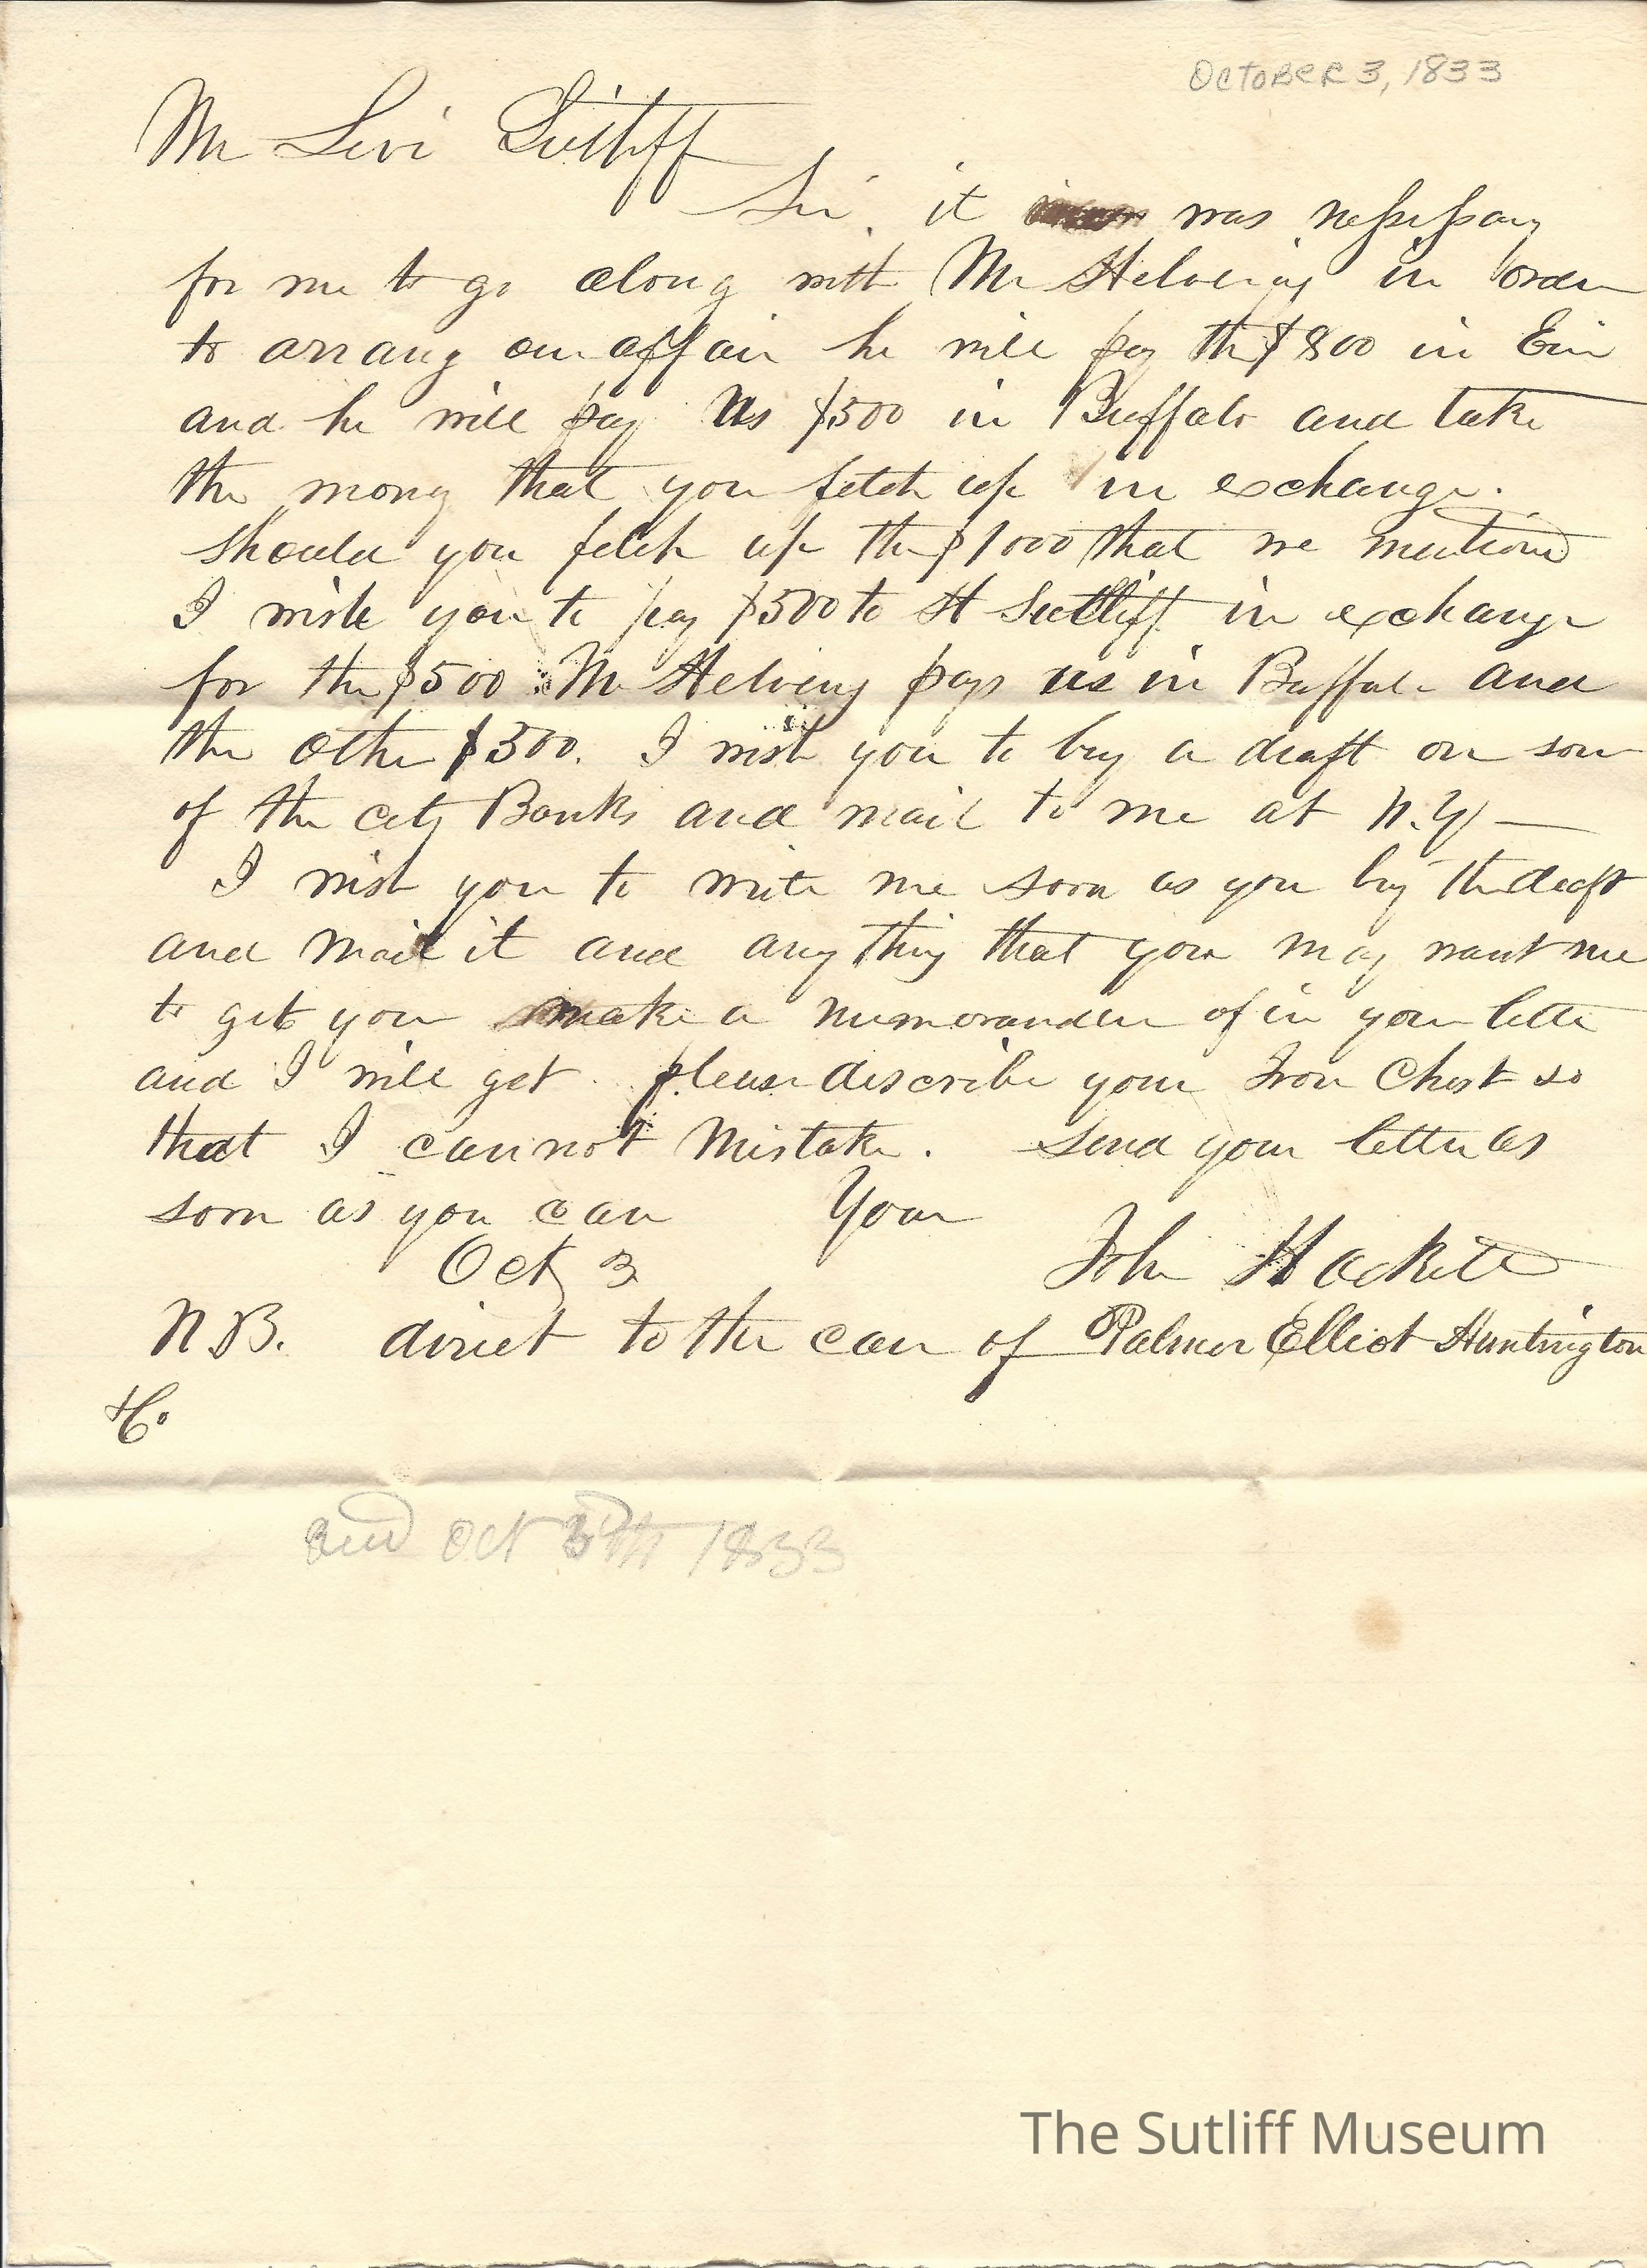 OCTOBER 3, 1833
Mr Levi Sutliff
Sir, it was nessessary
for me to go along with Mr Helveny in order
to arrang our affair he will pay the $800 in Erie
and he will pay us $500 in Buffalo and take
the mony that you fetch up in exchange.
should you fetch up the $1000 that we mentiond
I wish you to pay $500 to H Sutliff in exchange
for the $500 Mr Helveny pays us in Buffalo and
the other $500. I wish you to buy a draft on som
of the city Banks and mail to me at N.Y —
I wish you to write me soon as you buy the draft
and mail it and any thing that you may want me
to get you make a memorandum of in your letter
and I will get. please discribe your Iron Chest so
that I can not Mistake. Send your letter as
soon as you can Your
Oct 3 John Hackett
N B. direct to the care of Palmer Elliot Huntington
& Co
and Oct 1833
The Sutliff Museum